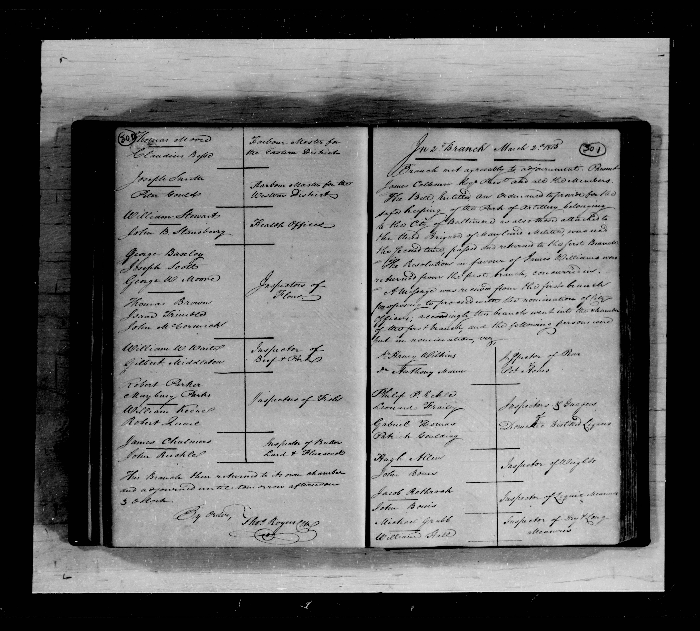 300
Thomas Moore
Claudius Besse
Harbour Master for
the Eastern District
Joseph Smith
Peter Coulter
Harbour Master for the
Western District
William Stewart
John B. Stansbury
Health Officer
George Baxley
Joseph Scott
George W. Moore
Thomas Brown
Isaac Trimble
John McCormick
Inspectors of
Flour
William W. Waite
Gilbert Middleton
Inspector of
Beef & Pork
Robert Parker
Maybury Parks
William Keene
Robert
Inspectors of Fish
James Chalmers
John Keehler
Inspector of Butter
Lard & Flaxseed
The Branch then returned to its own chamber
and adjourned until tomorrow afternoon
3 O'Clock
By Order,
Thos. Rogers Clk
301
In 2d Branch March 2d 1813
Branch met agreeable to adjournment. Present
James Calhoun Esqr Prest. and all the Members.
The Bill, entitled An Ordinance to provide for the
safe keeping of the Park of Artillery belonging
to the City of Baltimore or also those attached to
the third Brigade of Maryland Militia, was read
the second time, passed and returned to the first Branch
The Resolution in favour of James Williams was
returned from the first branch, concurred in.
A Message was received from the first branch
proposing to proceed with the nomination of City
officers, accordingly the branch went into the chamber
of the first branch, and the following persons were
put in nomination, viz
Dr. Henry Wilkins
Dr. Anthony Mann
Inspector of
Pot Ashes
Philip P. Eckel
Leonard Frailey
Gabriel Thomas
Peter Goulding
Inspectors & Gaugers
of
Domestic Distilled Liquors
Hugh Allen
John Bowis
Inspector of Weights
Jacob Rothrock
John Bowis
Inspector of Liquid Measures
Michael Grubb
William Ball
Inspector of Dry & Long
Measures